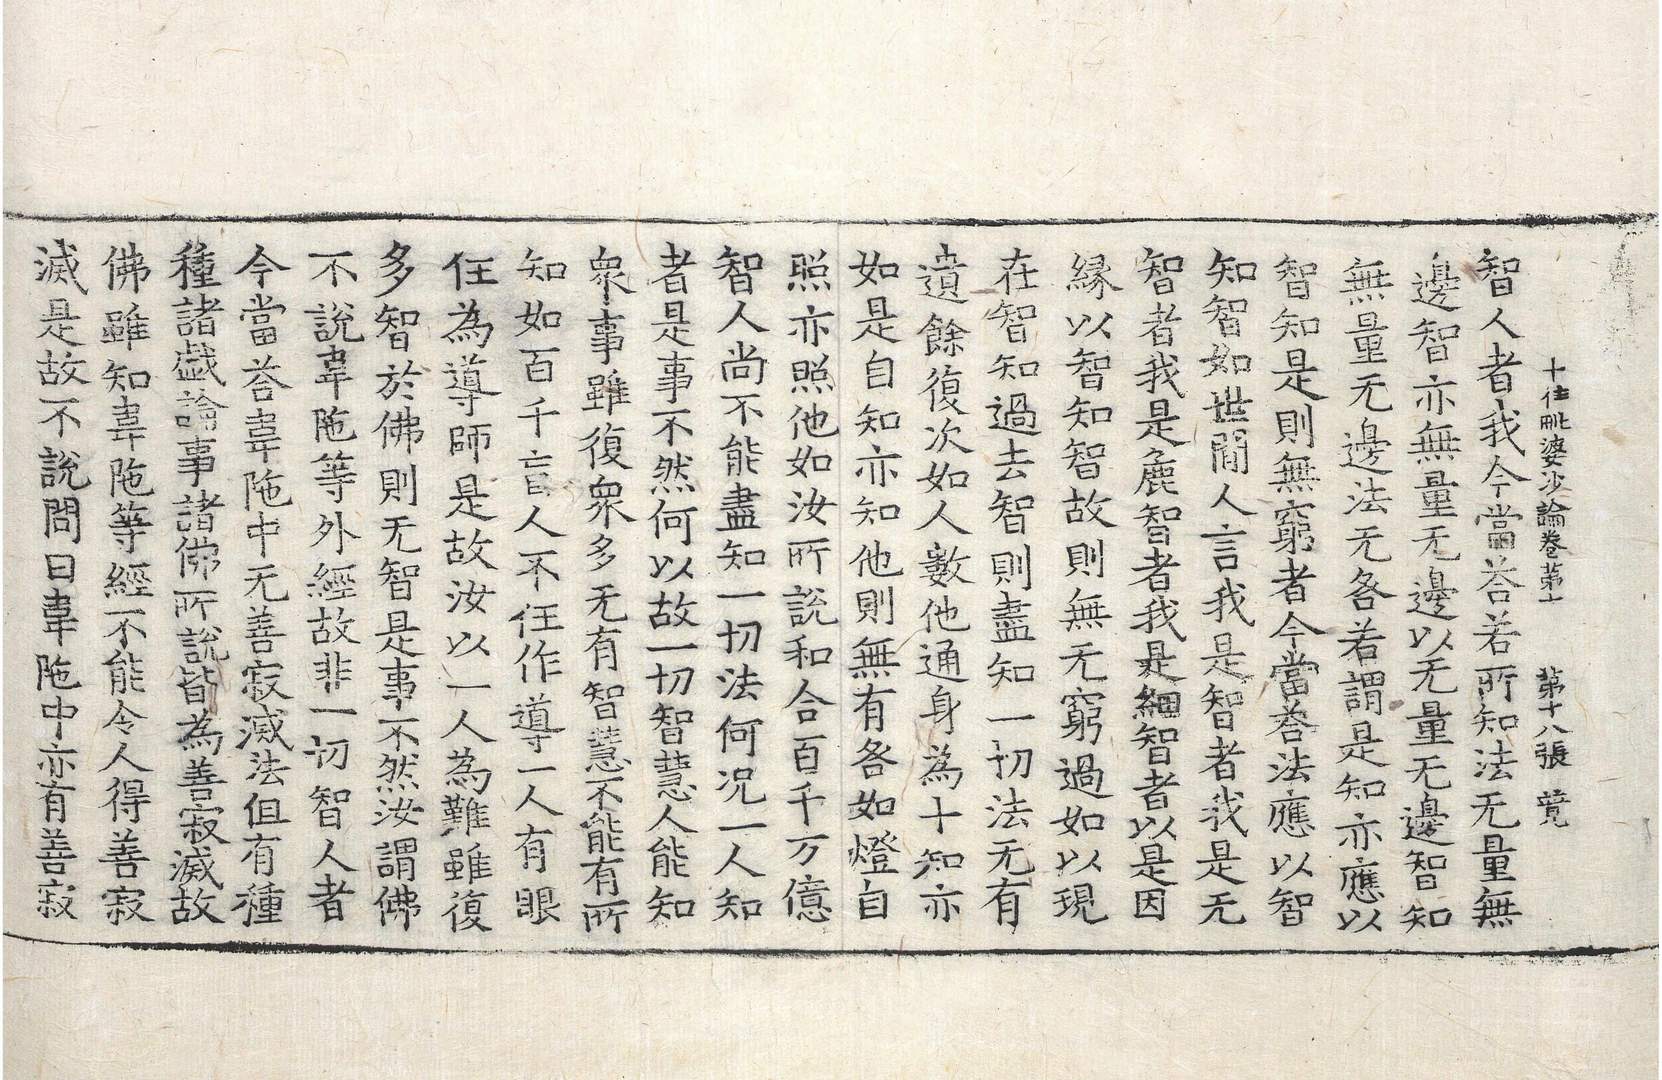 十住毗婆沙論卷苐十　苐十八張　竟
智人者我今當荅若所知法无量無
邊智亦無量无邊以无量无邊智知
無量无邊法无咎若謂是知亦應以
智知是則無窮者今當荅法應以智
知智如世間人言我是智者我是无
智者我是麁智者我是細智者以是因
緣以智知智故則無无窮過如以現
在智知過去智則盡知一切法无有
遺餘復次如人數他通身為十知亦
如是自知亦知他則無有咎如燈自
照亦照他如汝所說和合百千万億
智人尚不能盡知一切法何况一人知
者是事不然何以故一切智慧人能知
衆事雖復衆多无有智慧不能有所
知如百千盲人不任作導一人有眼
任為導師是故汝以一人為難雖復
多智於佛則无智是事不然汝謂佛
不說韋陁等外經故非一切智人者
今當荅韋陁中无善寂滅法但有種
種諸戲論事諸佛所說皆為善寂滅故
佛雖知韋陁等經不能令人得善寂
滅是故不說問曰韋陁中亦有善寂